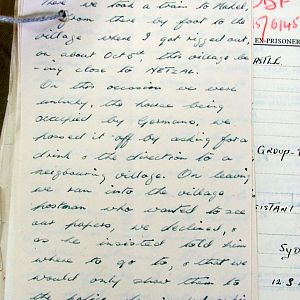 There we took a train to
from there by foot to the
village where I got rigged out,
on about Oct 5th this village be
-ing close to
On this occasion we were
unlucky, the house being
occupied by Germans, we
passed it off by asking for a
drink & the direction to a
neighbouring village. On leaving
we ran into the village
postman who wanted to see
our papers, we declined, &
as he insisted told him
where to go to, & that we
would only show them to
the police
EX-PRISONER
GROUP-